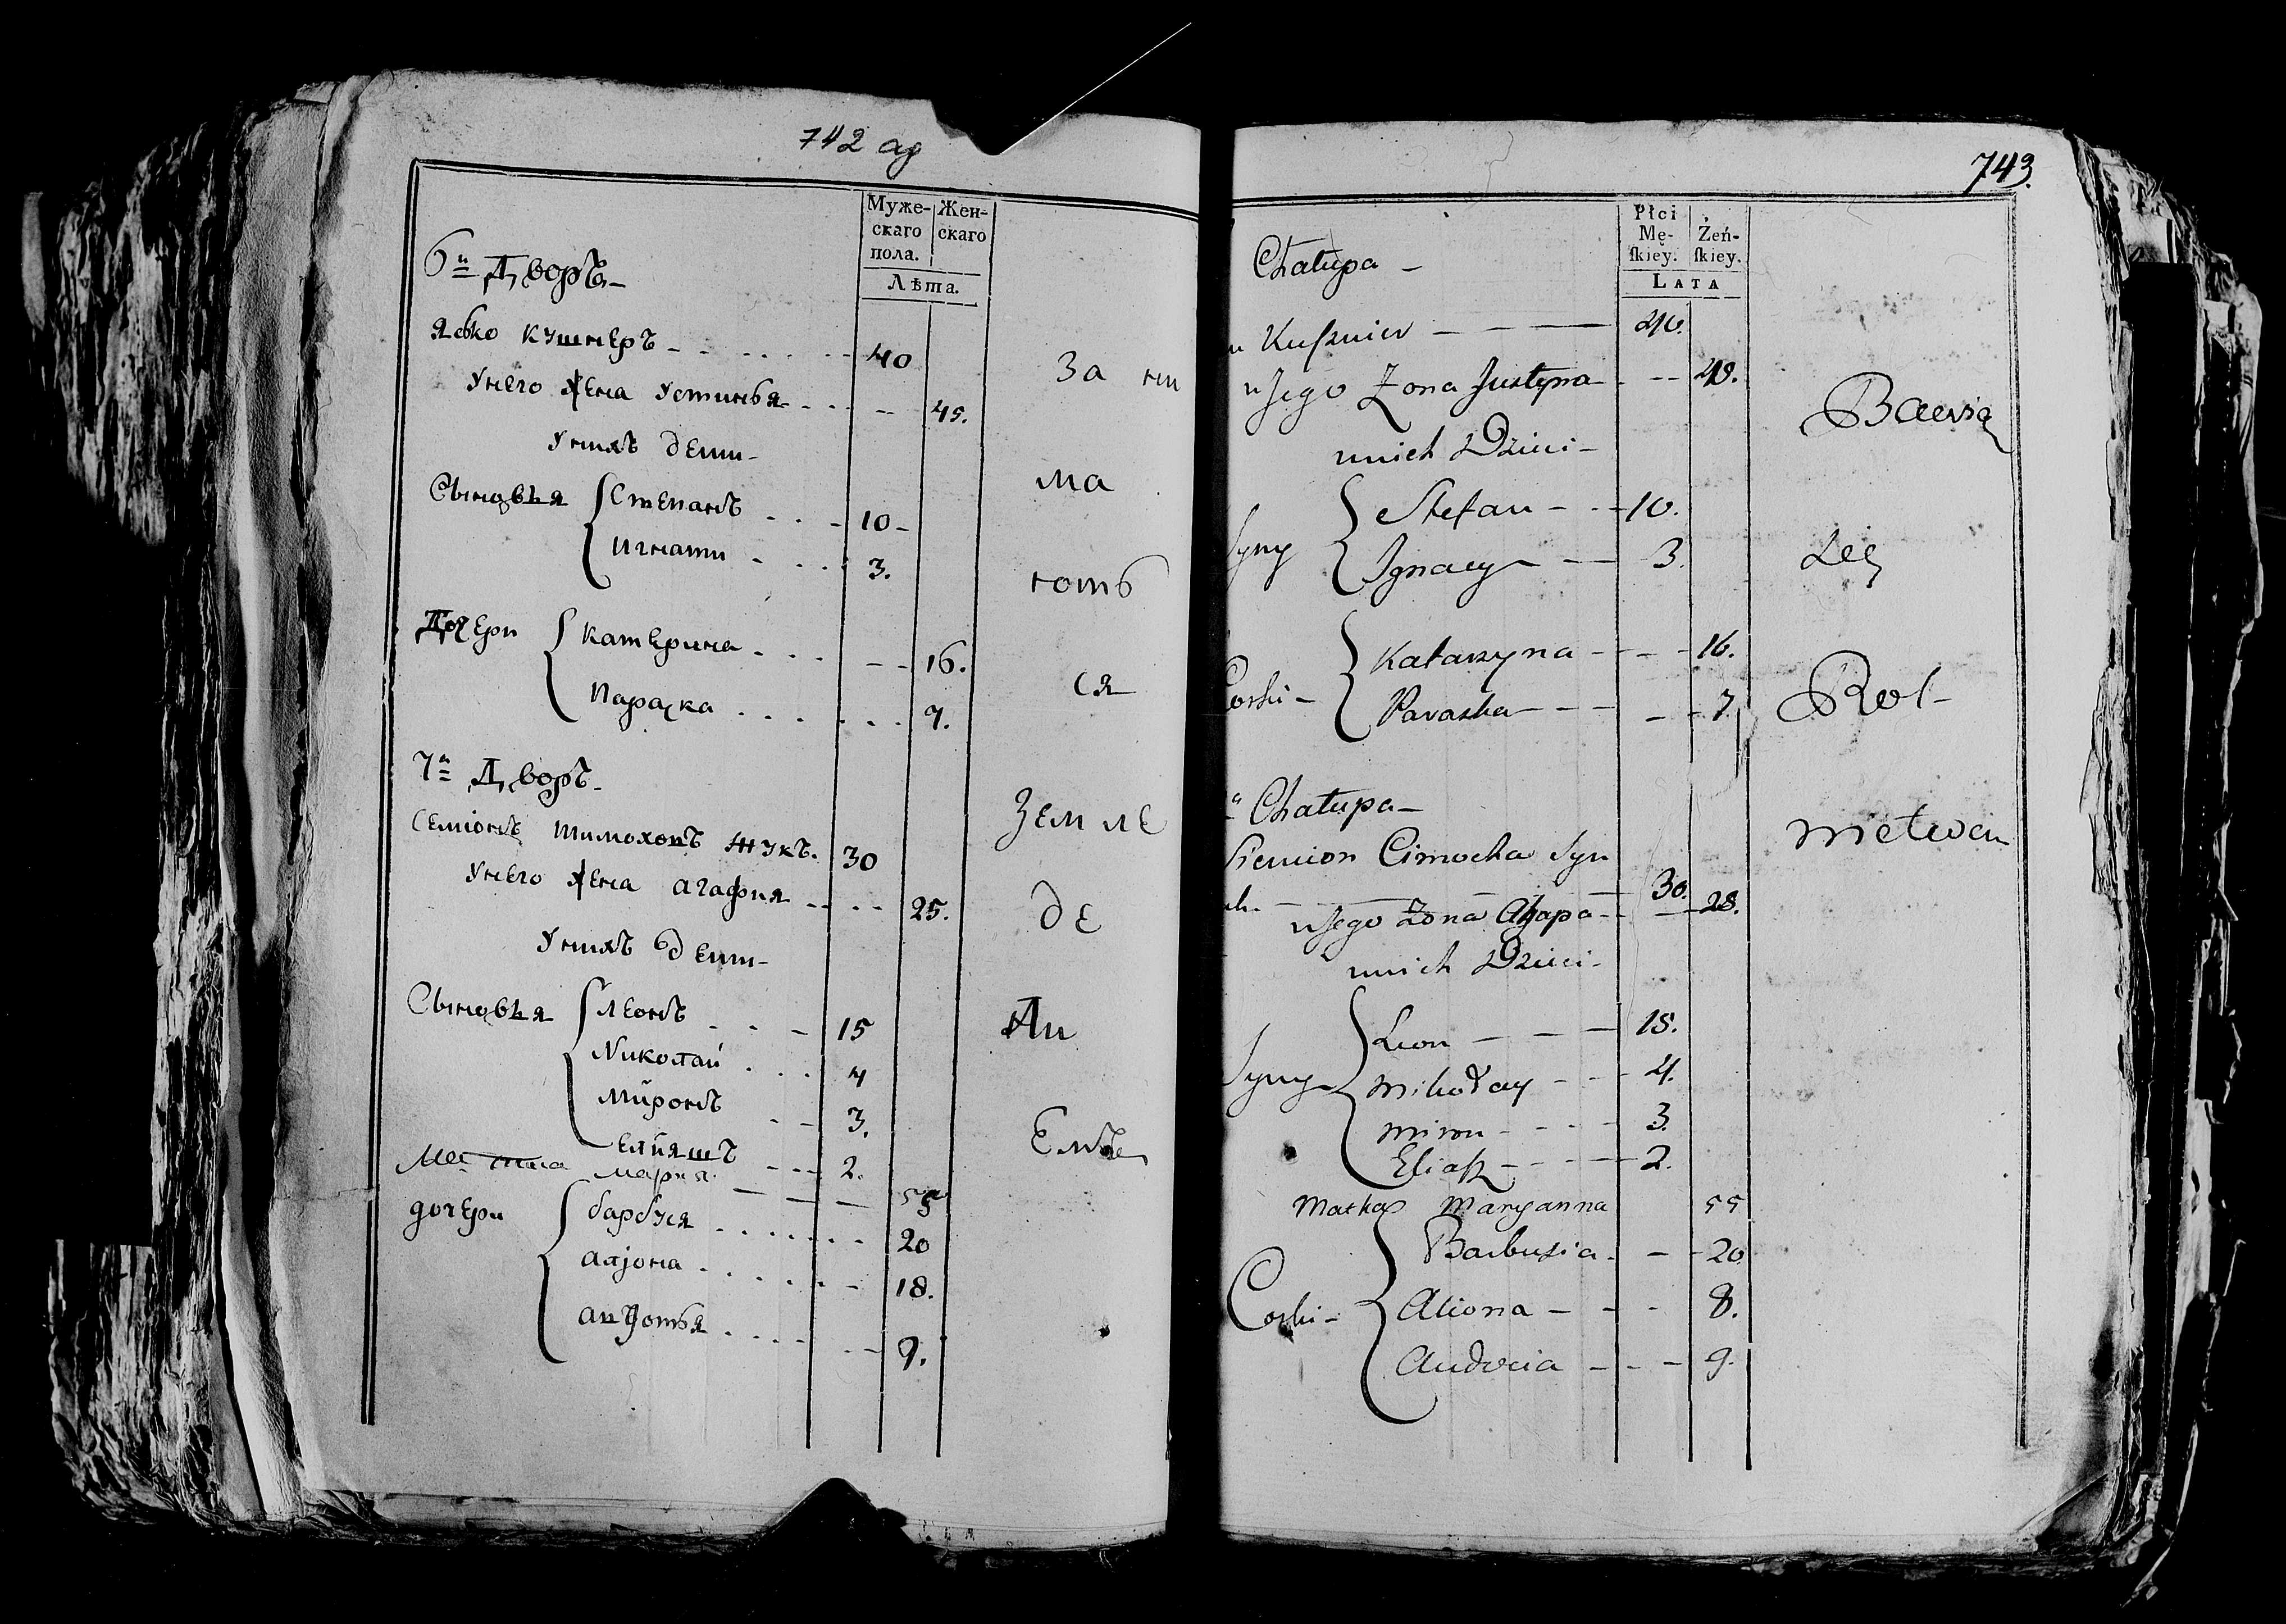 742 ад
Муже-
скаго
пола.
Жен-
скаго
Лѣта.
6й Дворъ
Яско Кушнеръ 40
Унего Жена Устинья 45.
Унихъ дети
Сыновья Степанъ 10
Игнати 3.
Дочери Катерина 16.
Параска 7.
7й Дворъ
Семіонъ Тимоховъ Жукъ. 30
Унего Жена Агафия 25.
Унихъ дети
Сыновья Леонъ 15
Николай 4
Миронъ 3.
Елияшъ 2.
Мария 55
дочери Барбуся 20
Алјона 18.
Авдотья 9.
За ни
ма
ютъ
ся
Земле
де
ли
емъ
743.
Płci
Mę-
ſkiey.
Żeń-
ſkiey.
LATA
Chałupa
Kuſznier 40.
u Jego Żona Justyna 45.
u nich Dzieci
Syny Stefan 10.
Ignacy 3.
Corki Katarzyna 16.
Paraska 7.
Chałupa
Siemion Cimocha Syn
30.
u Jego Żona Ahapa 25.
u nich Dzieci
Syny Leon 15.
Mikołay 4.
Miron 3.
Eliaſz 2.
Matka Maryanna 55
Corki Barbusia 20
Aliona 8.
Audocia 9.
Bawią
Się
Rol-
nictwem